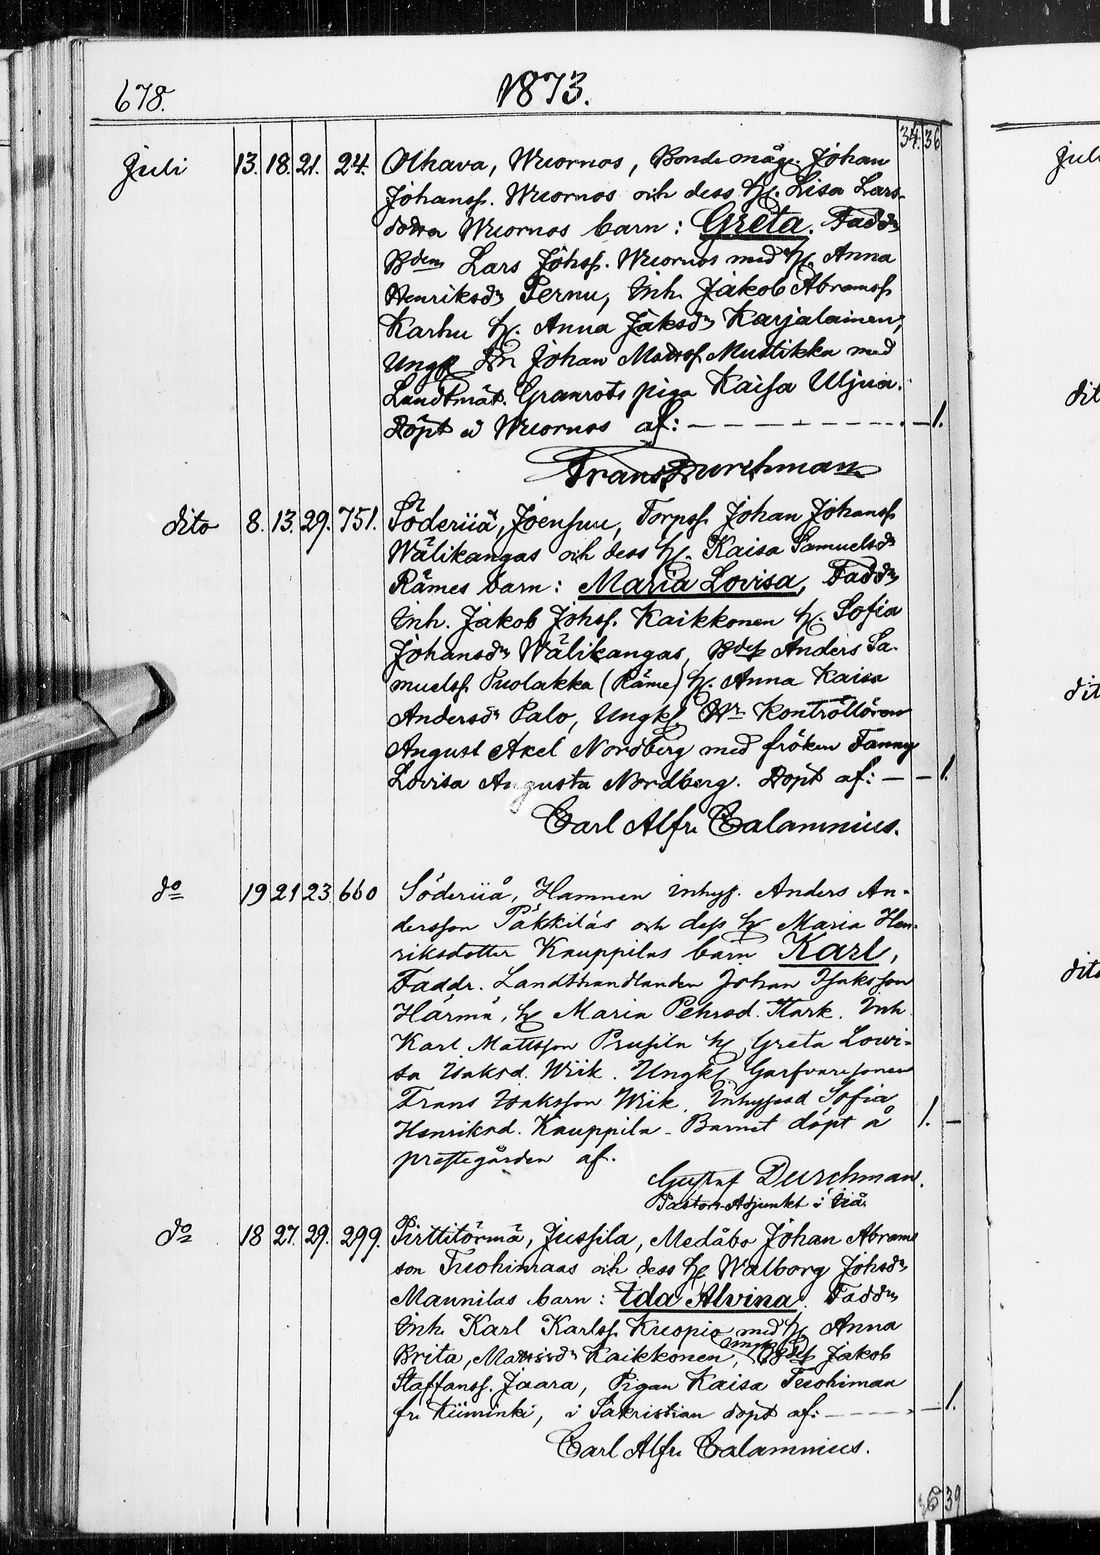 678. 1873.
34. 36
Juli 13. 18. 21. 24. Olhava, Wuornos, Bonde måg. Johan
Johanss. Wuornos och dess H. Lisa Lars-
dotter Wuornos barn: Greta. Faddr
Bden Lars Johss. Wuornos med H. Anna
Henriksdr Pernu, Inh. Jakob Abramss.
Karhu H. Anna Jaksdr Karjalainen,
Ungk Dr. Johan Matss. Mustikka med
Landtmät. Granrots piga Kaisa Uljua.
Döpt i Wuornos af: — 1.
Frans Durchman
dito 8. 13. 29. 751. Söderiiå, Joensuu, Torpss. Johan Johanss
Wälikangas och dess H. Kaisa Samuelsdr
Rämes barn: Maria Lovisa, Faddr
Inh. Jakob Johss. Kaikkonen H. Sofia
Johansdr Wälikangas, Bdess Anders Sa-
muelss. Puolakka (Räme) H. Anna Kaisa
Andersdr Palo, Ungk Hr Kontrollören
August Axel Nordberg med fröken Fanny
Lovisa Augusta Nordberg. Döpt af: — 1.
Carl Alfr. Calamnius.
do 19 21 23 660 Söderiiå, Hamnen inhys. Anders An-
dersson Päkkiläs och dess H Maria Hen-
riksdotter Kauppilas barn Karl,
Faddr. Landthandlanden Johan Isaksson
Härmä, H Maria Pehrsd. Stark. Inh.
Karl Mattsson Prusila H Greta Lowi-
sa Isaksd. Wiik. Ungk Garfvaregesällen
Frans Isaksson Wiik, Inhysesd Sofia
Henriksd. Kauppila - Barnet döpt å 1. —
prestegården af.
Gustaf Durchman.
Pastors Adjunkt i Iiå.
do 18 27. 29. 299. Pirttitörmä, Jussila, Medåbo Johan Abrams
son Tuohimaas och dess H Walborg Johsdr
Maunilas barn: Ida Alvina. Faddr
Inh. Karl Karlss. Kuopio med H. Anna
Brita, Matssdr Kaikkonen, ungk Bdess Jakob
Staffanss. Jaara, Pigan Kaisa Tuohimaa
fr. Kiiminki, i Sakristian döpt af: — 1.
Carl Alfr. Calamnius.
36 39
Juli
dito
dito
dito